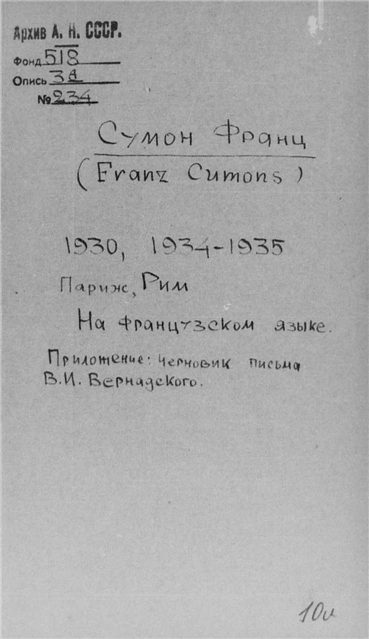 Архив А. Н. СССР.
Фонд 518
Опись 3д
№ 234
Сумон Франц
(Franz Cumons)
1930, 1934-1935
Париж, Рим
На французском языке.
Приложение: черновик письма
В.И. Вернадского.
10л